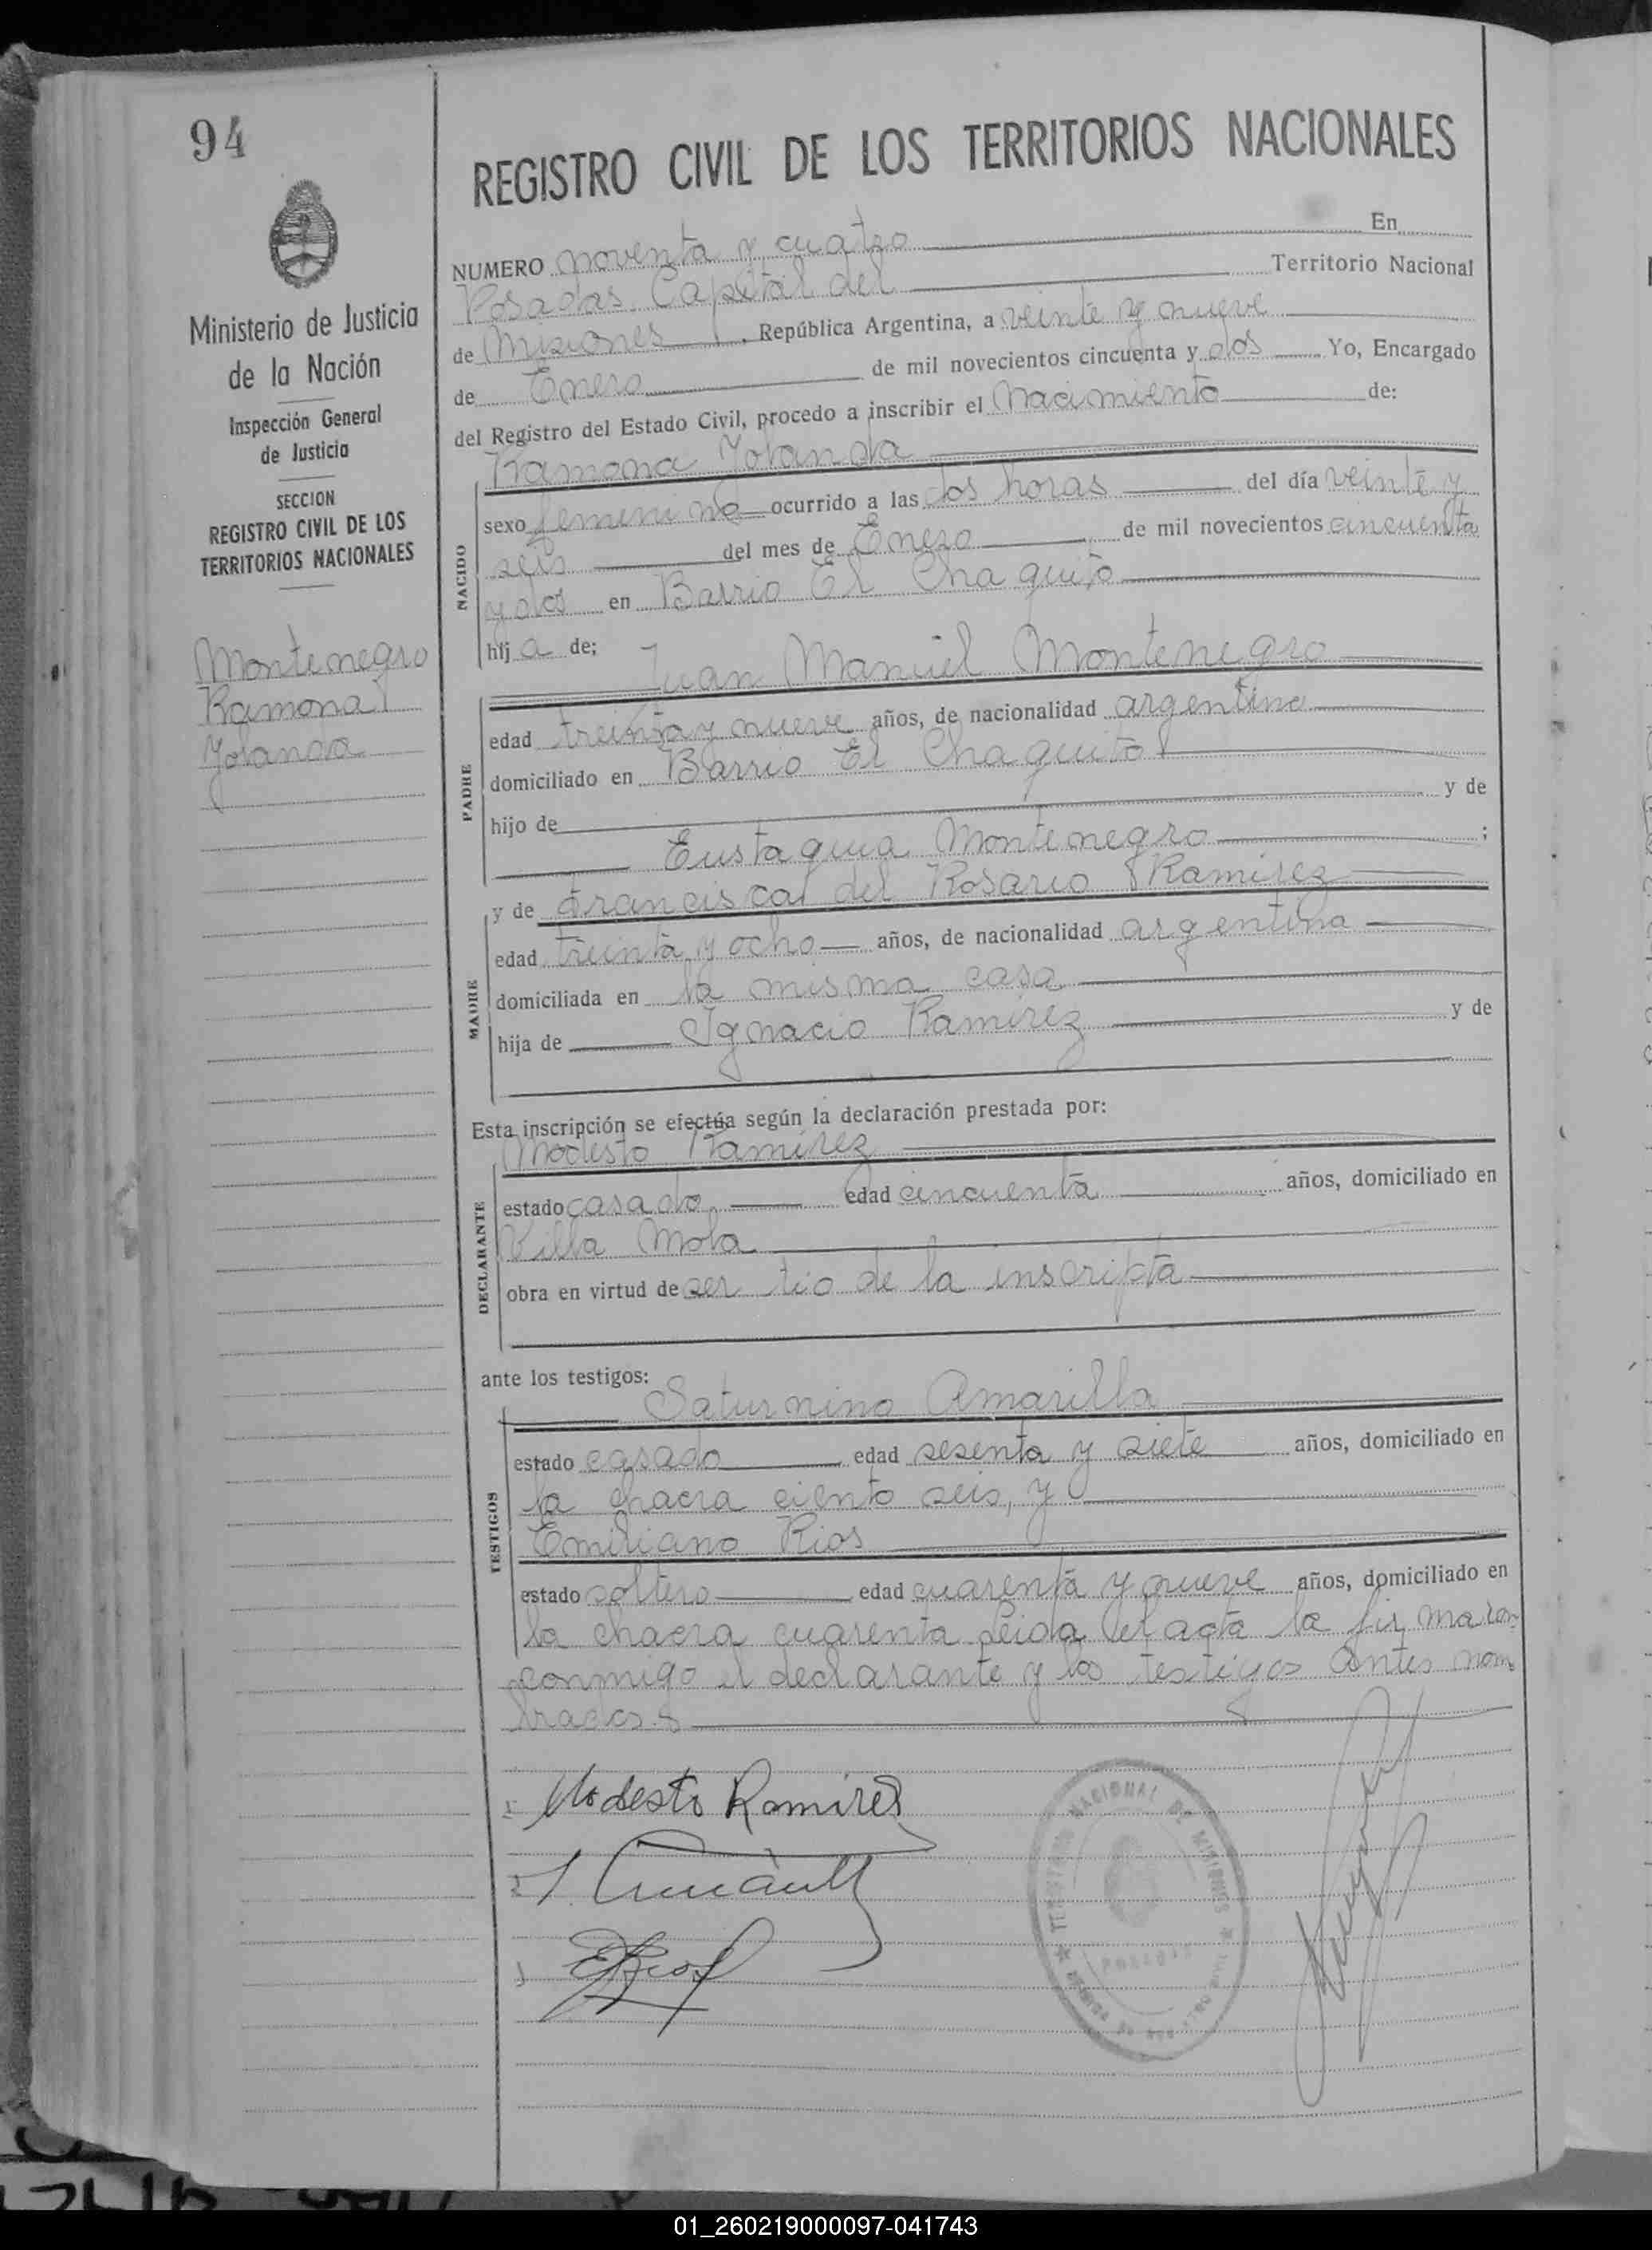 94
Ministerio de Justicia
de la Nación
Inspección General
de Justicia
SECCION
REGISTRO CIVIL DE LOS
TERRITORIOS NACIONALES
Montenegro
Ramona
Yolanda
REGISTRO CIVIL DE LOS TERRITORIOS NACIONALES
NUMERO noventa y cuatro En
Posadas, Capital del Territorio Nacional
de Misiones, República Argentina, a veinte y nueve
de Enero de mil novecientos cincuenta y dos Yo, Encargado
del Registro del Estado Civil, procedo a inscribir el Nacimiento de:
Ramona Yolanda
NACIDO
sexo femenino ocurrido a las dos horas del día veinte y
seis del mes de Enero de mil novecientos cincuenta
y dos en Barrio El Chaquito
hij a de;
Juan Manuel Montenegro
PADRE
edad treinta y nueve años, de nacionalidad argentino
domiciliado en Barrio El Chaquito
hijo de y de
Eustaquia Montenegro ;
y de Francisca del Rosario Ramirez
MADRE
edad treinta y ocho años, de nacionalidad argentina
domiciliada en la misma casa
hija de Ignacio Ramirez y de
Esta inscripción se efectúa según la declaración prestada por:
Modesto Ramirez
DECLARANTE
estado casado edad cincuenta años, domiciliado en
Villa Mola
obra en virtud de ser tio de la inscripta
ante los testigos:
Saturnino Amarilla
TESTIGOS
estado casado edad sesenta y siete años, domiciliado en
la chacra ciento seis, y
Emiliano Rios
estado soltero edad cuarenta y nueve años, domiciliado en
la chacra cuarenta Leida el acta la firmaron
conmigo el declarante y los testigos antes nom
brados.
Modesto Ramirez
E Rios
TERRITORIO NACIONAL DE MISIONES
POSADAS
01_260219000097-041743